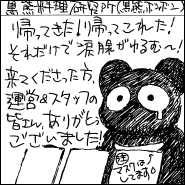 黒熊料理研究所(黒熊ポンポン)
帰ってきた!帰ってこれた!
それだけで涙腺がゆるむへ!
来てくださった方、
運営&スタッフの
皆さん、ありがとう
ございました!
マスクは
してます。